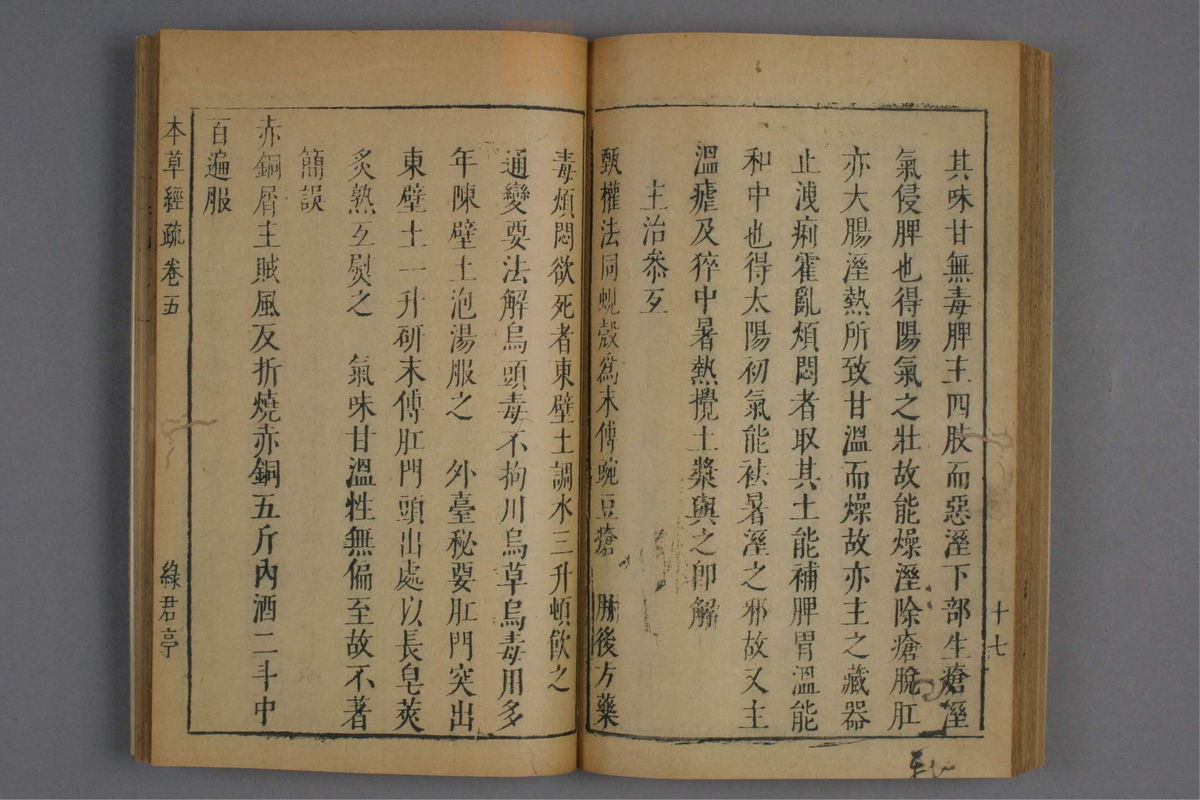 十七
其味甘無毒脾主四肢而惡溼下部生瘡溼
氣侵脾也得陽氣之壯故能燥溼除瘡脫肛
亦大腸溼熱所致甘溫而燥故亦主之藏器
止洩痢霍亂煩悶者取其土能補脾胃溫能
和中也得太陽初氣能袪暑溼之邪故又主
溫瘧及猝中暑熱攪土漿與之卽解
主治參互
甄權法同蜆殼為末傅豌豆瘡　肘後方藥
毒煩悶欲死者東壁土調水三升頓飲之
通變要法解烏頭毒不拘川烏草烏毒用多
年陳壁土泡湯服之　外臺秘要肛門突出
東壁土一升研末傅肛門頭出處以長皂莢
炙熟互熨之　氣味甘溫性無偏至故不著
簡誤
赤銅屑主賊風反折燒赤銅五斤內酒二斗中
百遍服
本草經疏卷五　綠君亭